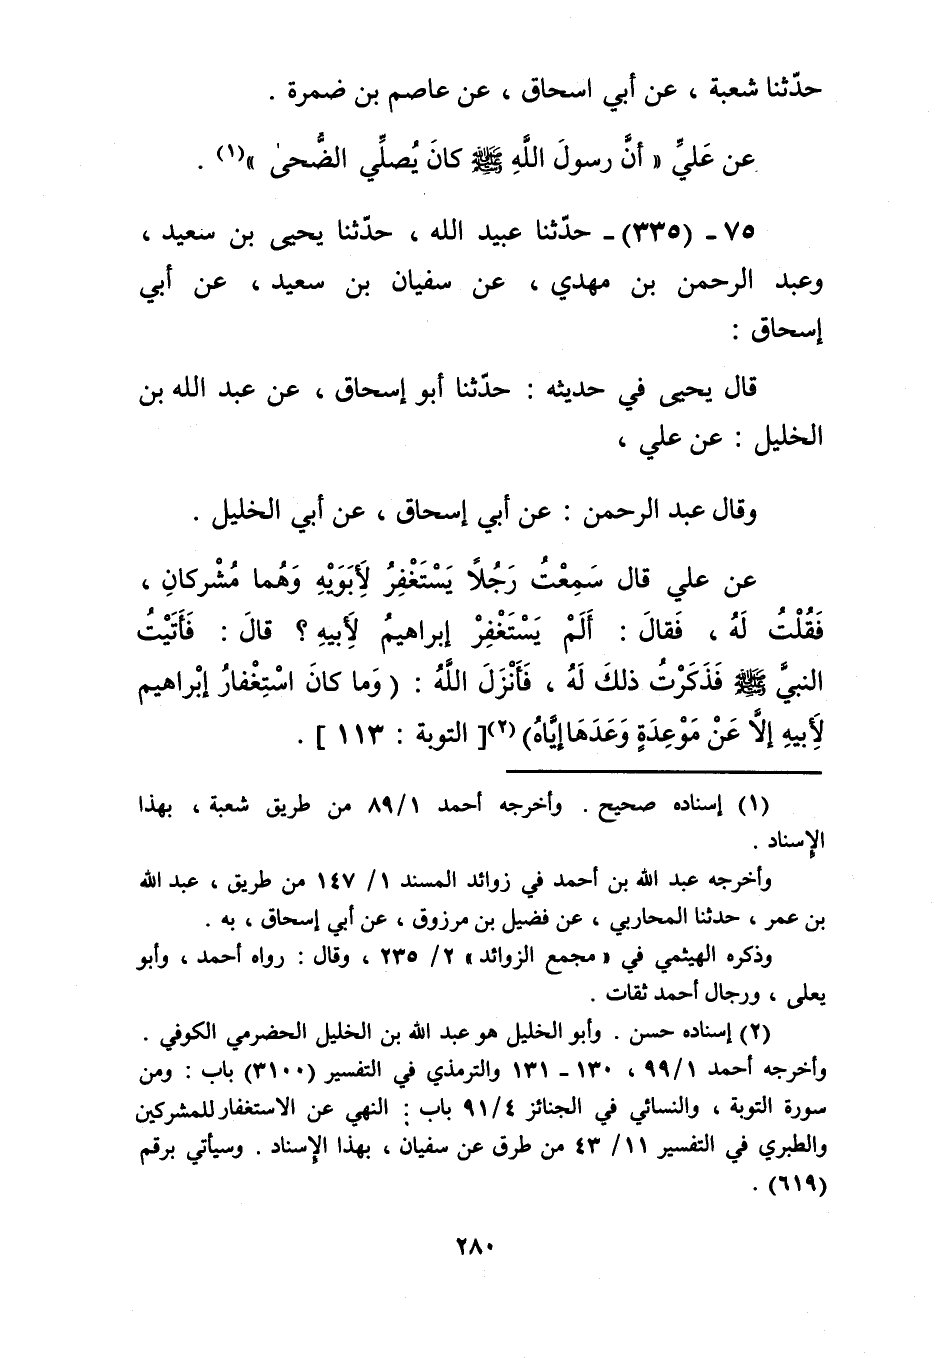 حدّثنا شعبة ، عن أبي اسحاق ، عن عاصم بن ضمرة .
عن عَليٍّ « أنَّ رسولَ اللَّهِ ﷺ كانَ يُصلِّي الضُّحىٰ »(١) .
٧٥ ـ (٣٣٥) ـ حدّثنا عبيد الله ، حدّثنا يحيى بن سعيد ،
وعبد الرحمن بن مهدي ، عن سفيان بن سعيد ، عن أبي
إسحاق :
قال يحيى في حديثه : حدّثنا أبو إسحاق ، عن عبد الله بن
الخليل : عن علي ،
وقال عبد الرحمن : عن أبي إسحاق ، عن أبي الخليل .
عن علي قال سَمِعْتُ رَجُلاً يَسْتَغْفِرُ لِأَبَوَيْهِ وَهُما مُشْركانِ ،
فَقُلْتُ لَهُ ، فَقالَ : أَلَمْ يَسْتَغْفِرْ إبراهيمُ لِأبيهِ ؟ قالَ : فَأَتَيْتُ
النبيَّ ﷺ فَذَكَرْتُ ذلكَ لَهُ ، فَأَنْزَلَ اللَّهُ : ( وَما كانَ اسْتِغْفارُ إبْراهيم
لِأَبيهِ إلاَّ عَنْ مَوْعِدَةٍ وَعَدَهَا إيَّاهُ)(٢)[ التوبة : ١١٣ ] .
(١) إسناده صحيح . وأخرجه أحمد ٨٩/١ من طريق شعبة ، بهذا
الإسناد .
وأخرجه عبد الله بن أحمد في زوائد المسند ١/ ١٤٧ من طريق ، عبد الله
بن عمر ، حدثنا المحاربي ، عن فضيل بن مرزوق ، عن أبي إسحاق ، به .
وذكره الهيثمي في « مجمع الزوائد » ٢/ ٢٣٥ ، وقال : رواه أحمد ، وأبو
يعلى ، ورجال أحمد ثقات .
(٢) إسناده حسن . وأبو الخليل هو عبد الله بن الخليل الحضرمي الكوفي .
وأخرجه أحمد ٩٩/١ ، ١٣٠ ـ ١٣١ والترمذي في التفسير (٣١٠٠) باب : ومن
سورة التوبة ، والنسائي في الجنائز ٩١/٤ باب : النهي عن الاستغفار للمشركين
والطبري في التفسير ١١/ ٤٣ من طرق عن سفيان ، بهذا الإسناد . وسيأتي برقم
(٦١٩) .
٢٨٠